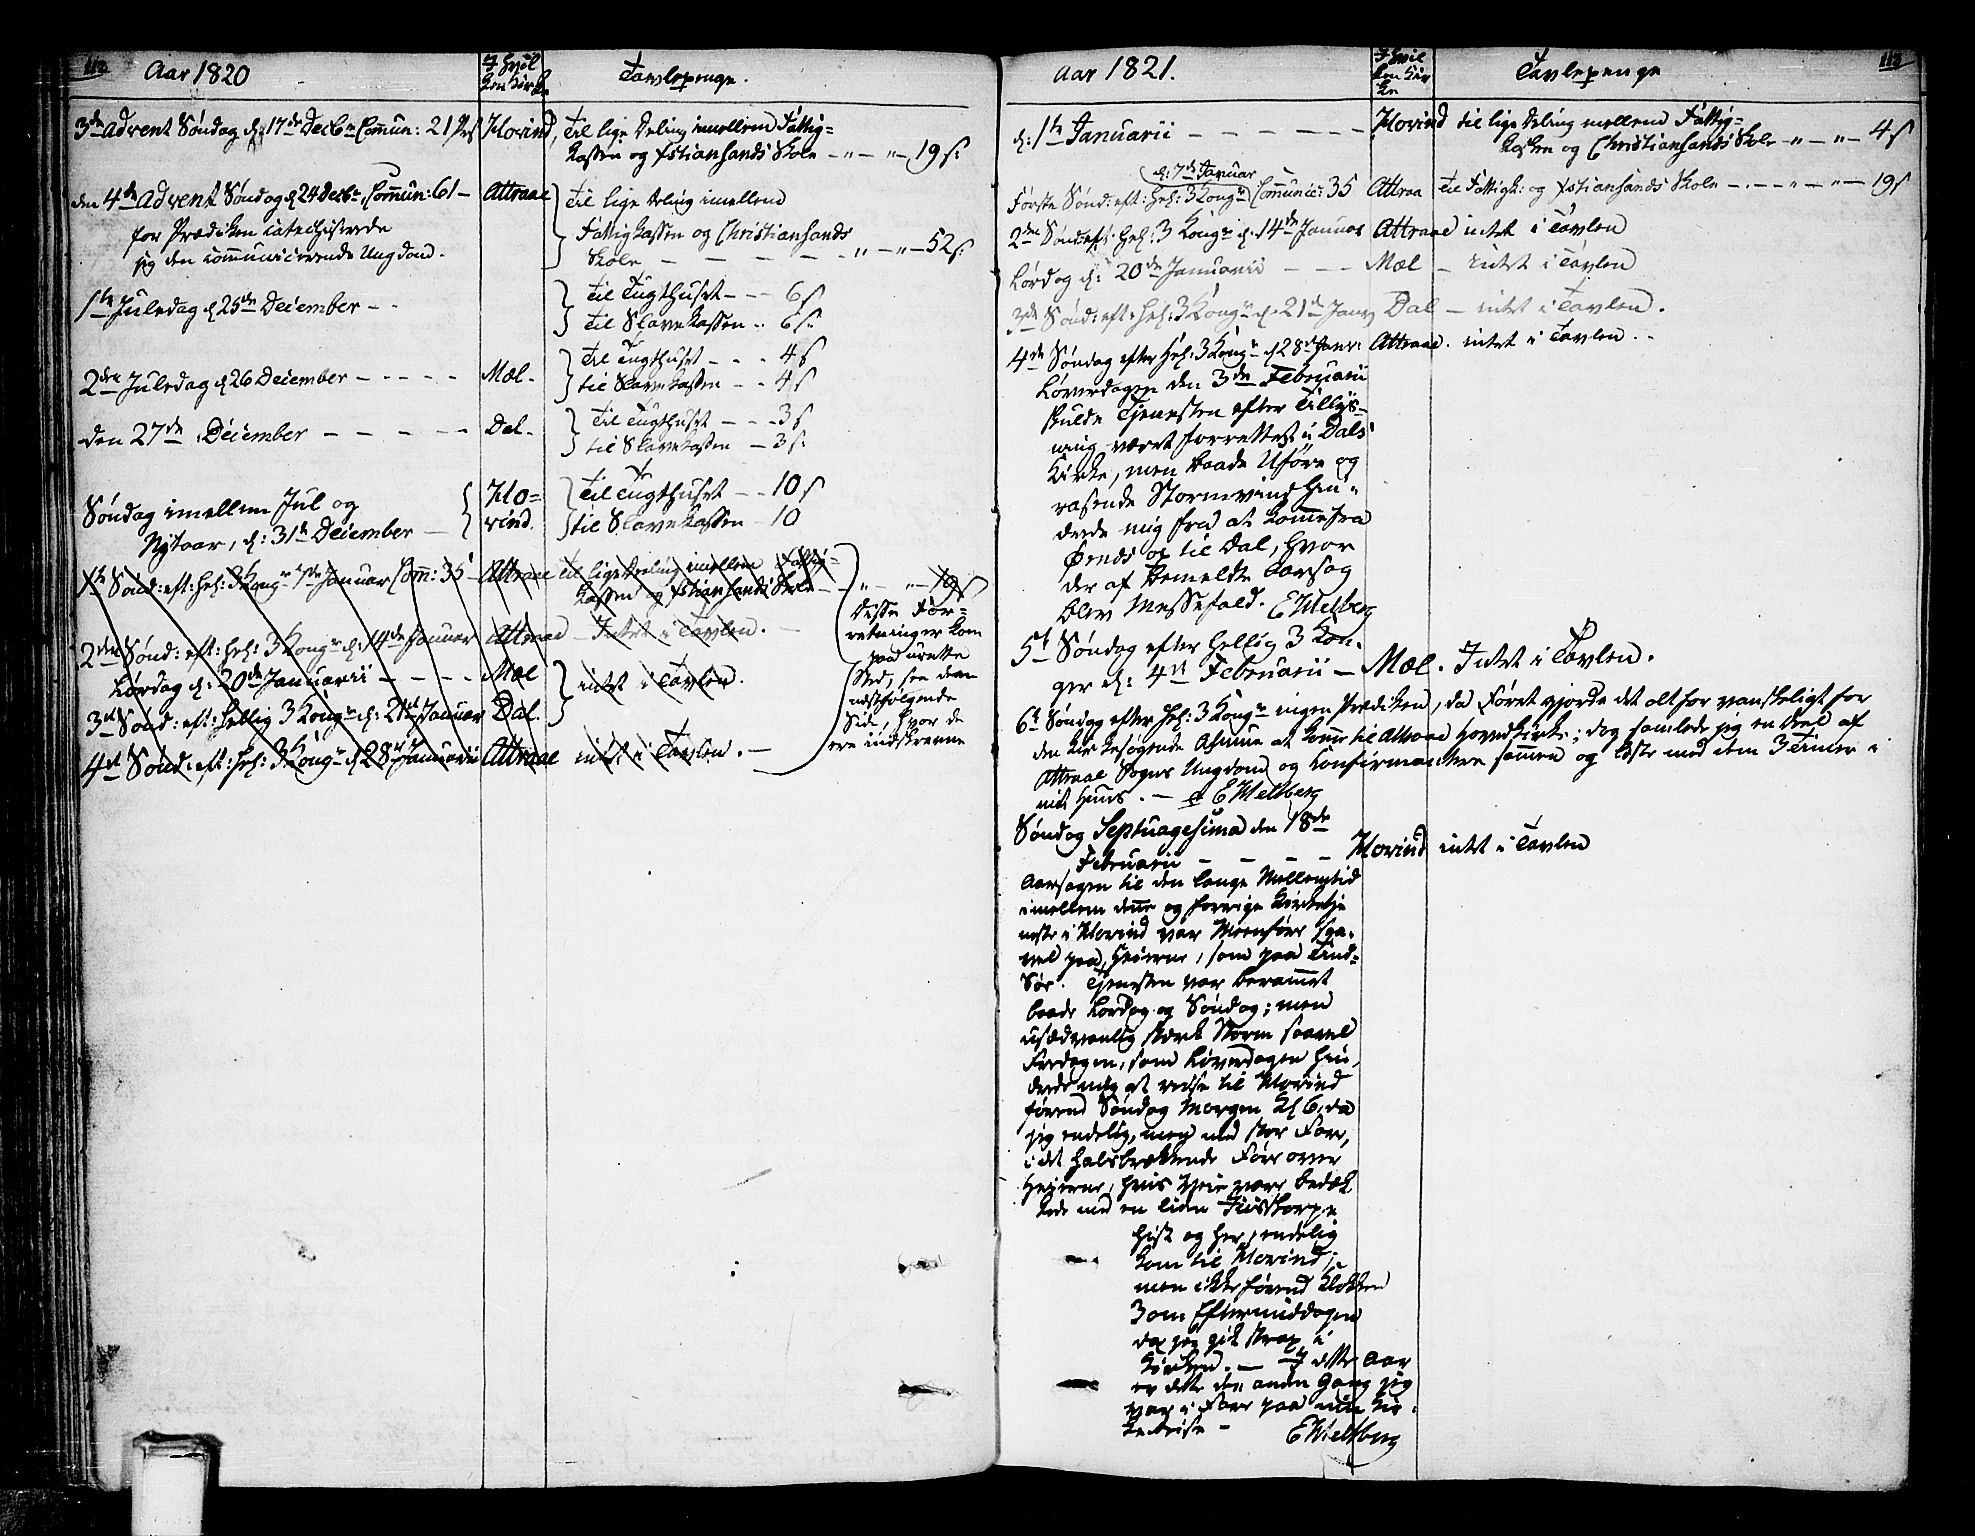 112
Aar 1820
I hvil
ken Kirke
Tavlepenge.
3de Advent Søndag d: 17de Decbr Commun: 21 Pers
Hovind,
Til lige Deling imellem Fattig-
kassen og Xstiansands Skole - „ - „ - 19 s:
den 4de Advent Søndag d 24 Decbr, Commun: 61 -
for Prædiken Catechiserede
jeg den communicerende Ungdom.
Attraae
Til lige Deling imellem
Fattigkassen og Christiansands
Skole - - - - - „ - „ - 52 s:
1ste Juledag d 25de December - -
Til Tugthuset - - 6 s
Til Slavekassen - 6 s
2den Juledag d 26 December - - - - -
Mæl -
Til Tugthuset - - 4 s
til Slavekassen - - 4 s
den 27de December - - - - -
Dal -
Til Tugthuset - - 3 s
til Slavekassen - 3 s:
Søndag imellem Jul og
Nytaar, d: 31te December -
Ho=
vind.
Til Tugthuset - - 10 s
til Slavekassen - 10
1te Sønd: eft: hel: 3 Kongr 7de Januar Comm: 35
Attraae
til lige Deling imellem Fattig-
kassen og Xstiansands Skole - „ - „ - 19 s
2den Sønd: eft: hel: 3 Kongr d: 14de Januar
Attraae - Intet i Tavlen. -
Lørdag d: 20de Januarii - - - -
Mæl
intet i Tavlen.
3de Sønd: eft: hellig 3 Kongr d: 21de Januar
Dal.
4de Sønd: eft: hel: 3 Kongr d 28de Januarii
Attraae
intet i Tavlen. -
Disse For-
retninger kom
paa urette
Sted, see dem
næstfølgende
Side, hvor de
ere indskrevne
Aar 1821.
I hvil
ken Kir
ke
Tavlepenge
113
d: 1te Januarii - - - - - -
Hovind
til lige Deling mellem Fattig-
kassen og Christiansands Skole - „ - „ - 4 s
d: 7de Januar
Første Sønd: eft: hel: 3 Kongr Communic: 35
Attraa
til Fattigk: og Xstiansands Skole - - - „ - „ - 19 s
2den Sønd: eft: hel: 3 Kongr d. 14de Januar
Attraae
intet i Tavlen
Lørdag d: 20de Januarii - - -
Mæl
- intet i Tavlen
3de Sønd: eft: hel: 3 Kongr d. 21de Januar
Dal
- intet i Tavlen.
4de Søndag efter hel: 3 Kongr d 28de Janr:
Attraae.
intet i Tavlen. -
Løverdagen den 3de Februarii
skulde Tjenesten efter Tillys-
ning været forrettet i Dals
Kirke, men baade Uføre og
rasende Stormvind hin-
drede mig fra at komme fra
Ørnes og til Dal, hvor
der af bemeldte Aarsag
blev Messefald. E Welberg
5te Søndag efter hellig 3 Kon-
ger d: 4de Februarii -
Mæl.
Intet i Tavlen.
6te Søndag efter hel: 3 Kongr ingen Prædiken, da Føret gjorde det alt for vanskeligt for
den Kirkesøgende Almue at komme til Attraae Hovedkirke; dog samlede jeg en Deel af
Attraae Sogns Ungdom og Confirmantere sammen og læste med dem 3 Timer i
mit Huus. - E Welberg
Søndag Septuagesima den 18de
Februarii - - - -
Hovind
intet i Tavlen
Aarsagen til den lange Mellemtid
imellem denne og forrige Kirketje
neste i Hovind var Meenføre saa-
vel paa Heierne, som paa Tind-
Søe. Tjenesten var berammet
baade Lørdag og Søndag; men
usædvanlig stærk Storm saavel
Fredagen, som Løverdagen hin-
drede mig at reise til Hovind
førend Søndag Morgen Kl 6, da
jeg endelig, men med stor Fare,
i det halsbrækkende Føre over
Heierne, hvis Veie vare bedæk
kede med en liden Iisskorpe
hist og her, endelig
kom til Hovind;
men ikke førend Klokken
3 om Eftermiddagen
da jeg gik strax i
Kirken. - I dette Aar
er dette den anden Gang jeg
var i Fare paa min Kir-
kereise -
E Welberg